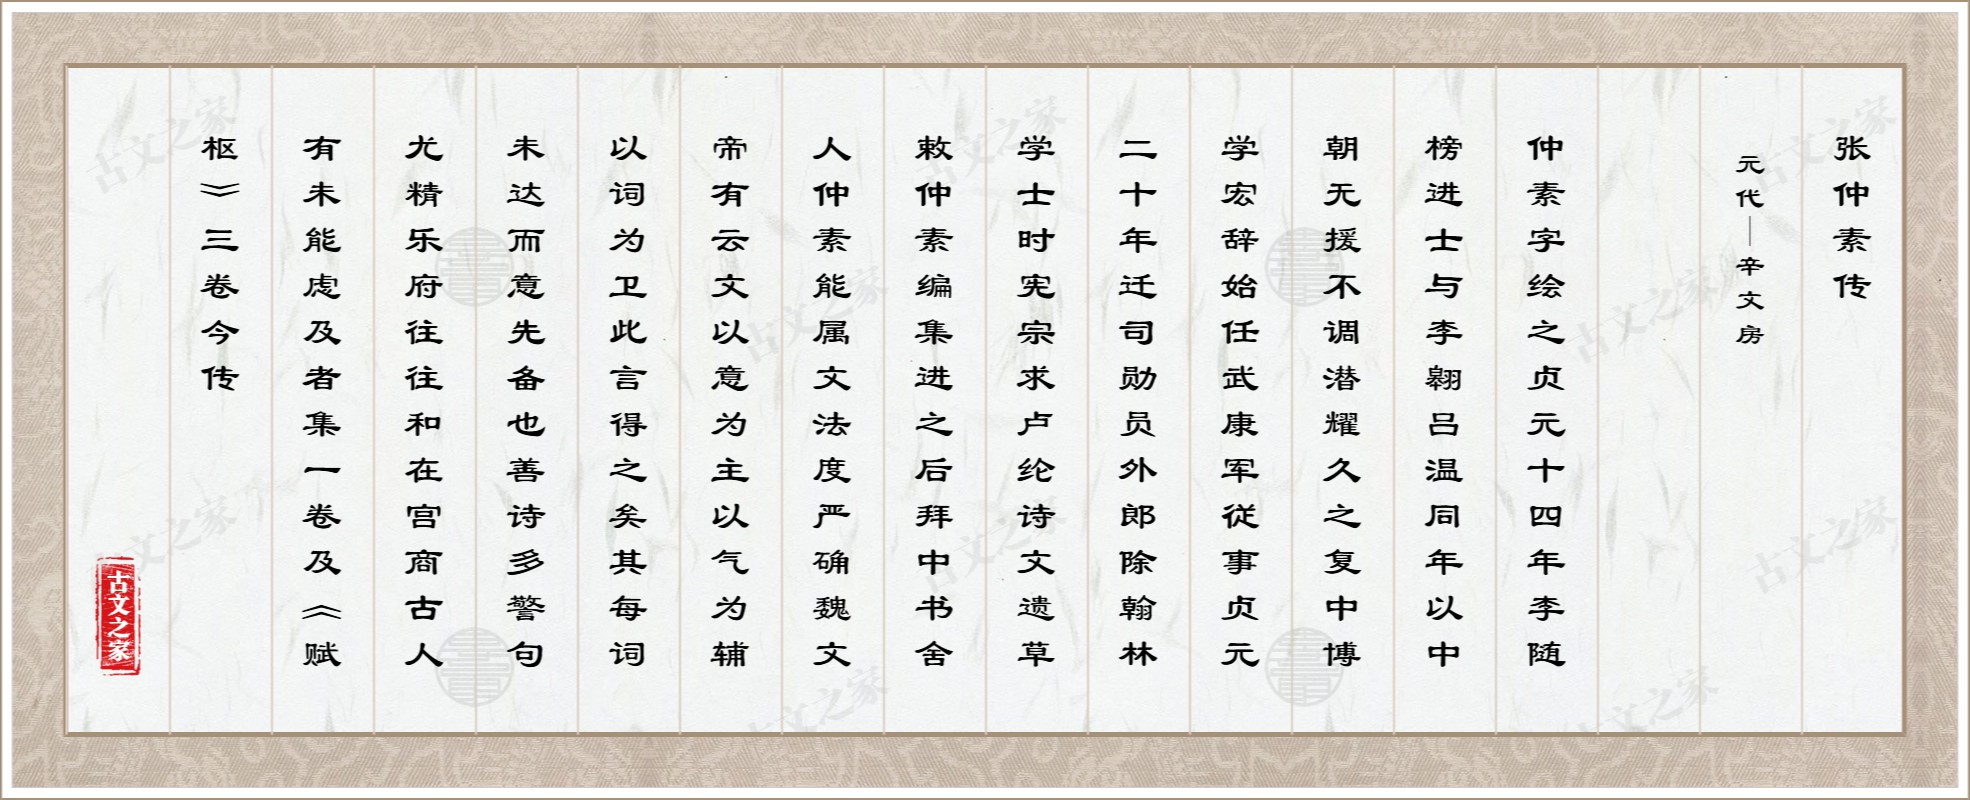 张仲素传
元代—辛文房
仲素字绘之贞元十四年李随
榜进士与李翱吕温同年以中
朝无援不调潜耀久之复中博
学宏辞始任武康军从事贞元
二十年迁司勋员外郎除翰林
学士时宪宗求卢纶诗文遗草
敕仲素编集进之后拜中书舍
人仲素能属文法度严确魏文
帝有云文以意为主以气为辅
以词为卫此言得之矣其每词
未达而意先备也善诗多警句
尤精乐府往往和在宫商古人
有未能虑及者集一卷及《赋
枢》三卷今传
古文之家